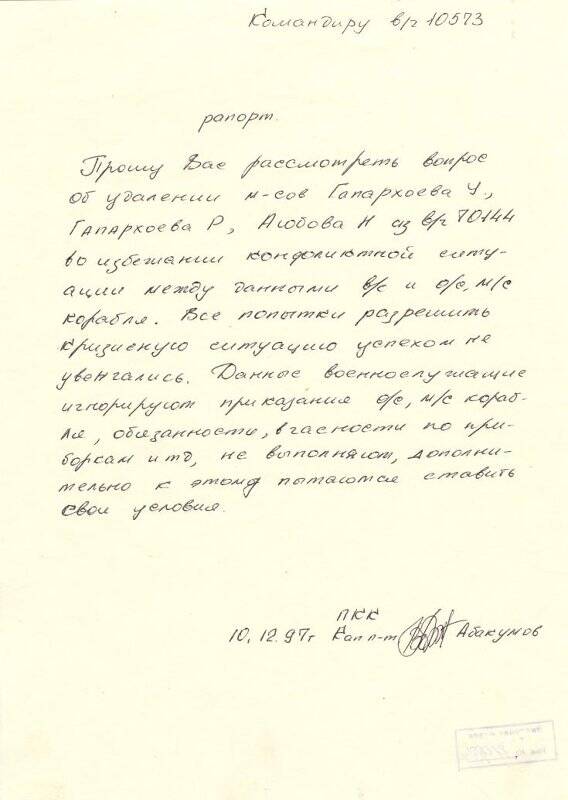 Командиру в/ч 10573
рапорт.
Прошу Вас рассмотреть вопрос
об удалении м-сов Гапархоева У.,
Гапархоева Р, Аюбова Н из в/ч 70144
во избежании конфликтной ситу-
ации между данными в/с и о/с, м/с
корабля. Все попытки разрешить
кризисную ситуацию успехом не
увенчались. Данные военнослужащие
игнорируют приказания о/с, м/с кораб-
ля, обязанности, в часности по при-
боркам и тд, не выполняют, дополни-
тельно к этому пытаются ставить
свои условия.
ПКК
10.12.97г Кап л-т Абакумов